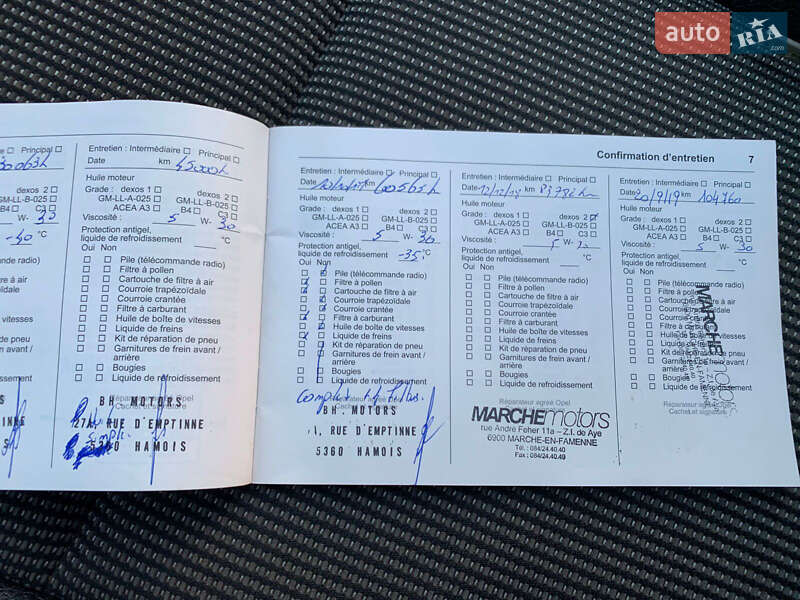 auto RIA .com
Confirmation d'entretien 7
Principal
30 063 h
dexos 2
GM-LL-B-025
B4 C3
W- 30
-40 °C
radio)
à air
vitesses
pneu
avant /
INNE
S
Entretien : Intermédiaire Principal
Date km 45000 h
Huile moteur
Grade : dexos 1 dexos 2
GM-LL-A-025 GM-LL-B-025
ACEA A3 B4 C3
Viscosité : 5 W- 30
Protection antigel,
liquide de refroidissement °C
Oui Non
Pile (télécommande radio)
Filtre à pollen
Cartouche de filtre à air
Courroie trapézoïdale
Courroie crantée
Filtre à carburant
Huile de boîte de vitesses
Liquide de freins
Kit de réparation de pneu
Garnitures de frein avant /
arrière
Bougies
Liquide de refroidissement
Réparateur agréé Opel
Cachet et signature
BH. MOTORS
27A, RUE D'EMPTINNE
5360 HAMOIS
Entretien : Intermédiaire Principal
Date km 60565 h
Huile moteur
Grade : dexos 1 dexos 2
GM-LL-A-025 GM-LL-B-025
ACEA A3 B4 C3
Viscosité : 5 W- 30
Protection antigel,
liquide de refroidissement -35 °C
Oui Non
Pile (télécommande radio)
Filtre à pollen
Cartouche de filtre à air
Courroie trapézoïdale
Courroie crantée
Filtre à carburant
Huile de boîte de vitesses
Liquide de freins
Kit de réparation de pneu
Garnitures de frein avant /
arrière
Bougies
Liquide de refroidissement
Réparateur agréé Opel
Cachet et signature
BH. MOTORS
RUE D'EMPTINNE
5360 HAMOIS
Entretien : Intermédiaire Principal
Date 12/12/18 km 83782
Huile moteur
Grade : dexos 1 dexos 2
GM-LL-A-025 GM-LL-B-025
ACEA A3 B4 C3
Viscosité : 5 W-
Protection antigel,
liquide de refroidissement °C
Oui Non
Pile (télécommande radio)
Filtre à pollen
Cartouche de filtre à air
Courroie trapézoïdale
Courroie crantée
Filtre à carburant
Huile de boîte de vitesses
Liquide de freins
Kit de réparation de pneu
Garnitures de frein avant /
arrière
Bougies
Liquide de refroidissement
Réparateur agréé Opel
MARCHEmotors
rue André Feher 11a – Z.I. de Aye
6900 MARCHE-EN-FAMENNE
Tél. : 084/24.40.40
Fax : 084/24.40.49
Entretien : Intermédiaire Principal
Date 20/9/19 km 104760
Huile moteur
Grade : dexos 1 dexos 2
GM-LL-A-025 GM-LL-B-025
ACEA A3 B4 C3
Viscosité : 5 W- 30
Protection antigel,
liquide de refroidissement °C
Oui Non
Pile (télécommande radio)
Filtre à pollen
Cartouche de filtre à air
Courroie trapézoïdale
Courroie crantée
Filtre à carburant
Huile de boîte de vitesses
Liquide de freins
Kit de réparation de pneu
Garnitures de frein avant /
arrière
Bougies
Liquide de refroidissement
Réparateur agréé Opel
Cachet et signature
MARCHEmotors